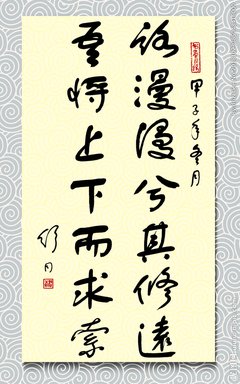 甲子年冬月
路漫漫兮其修遠
吾将上下而求索
舒同